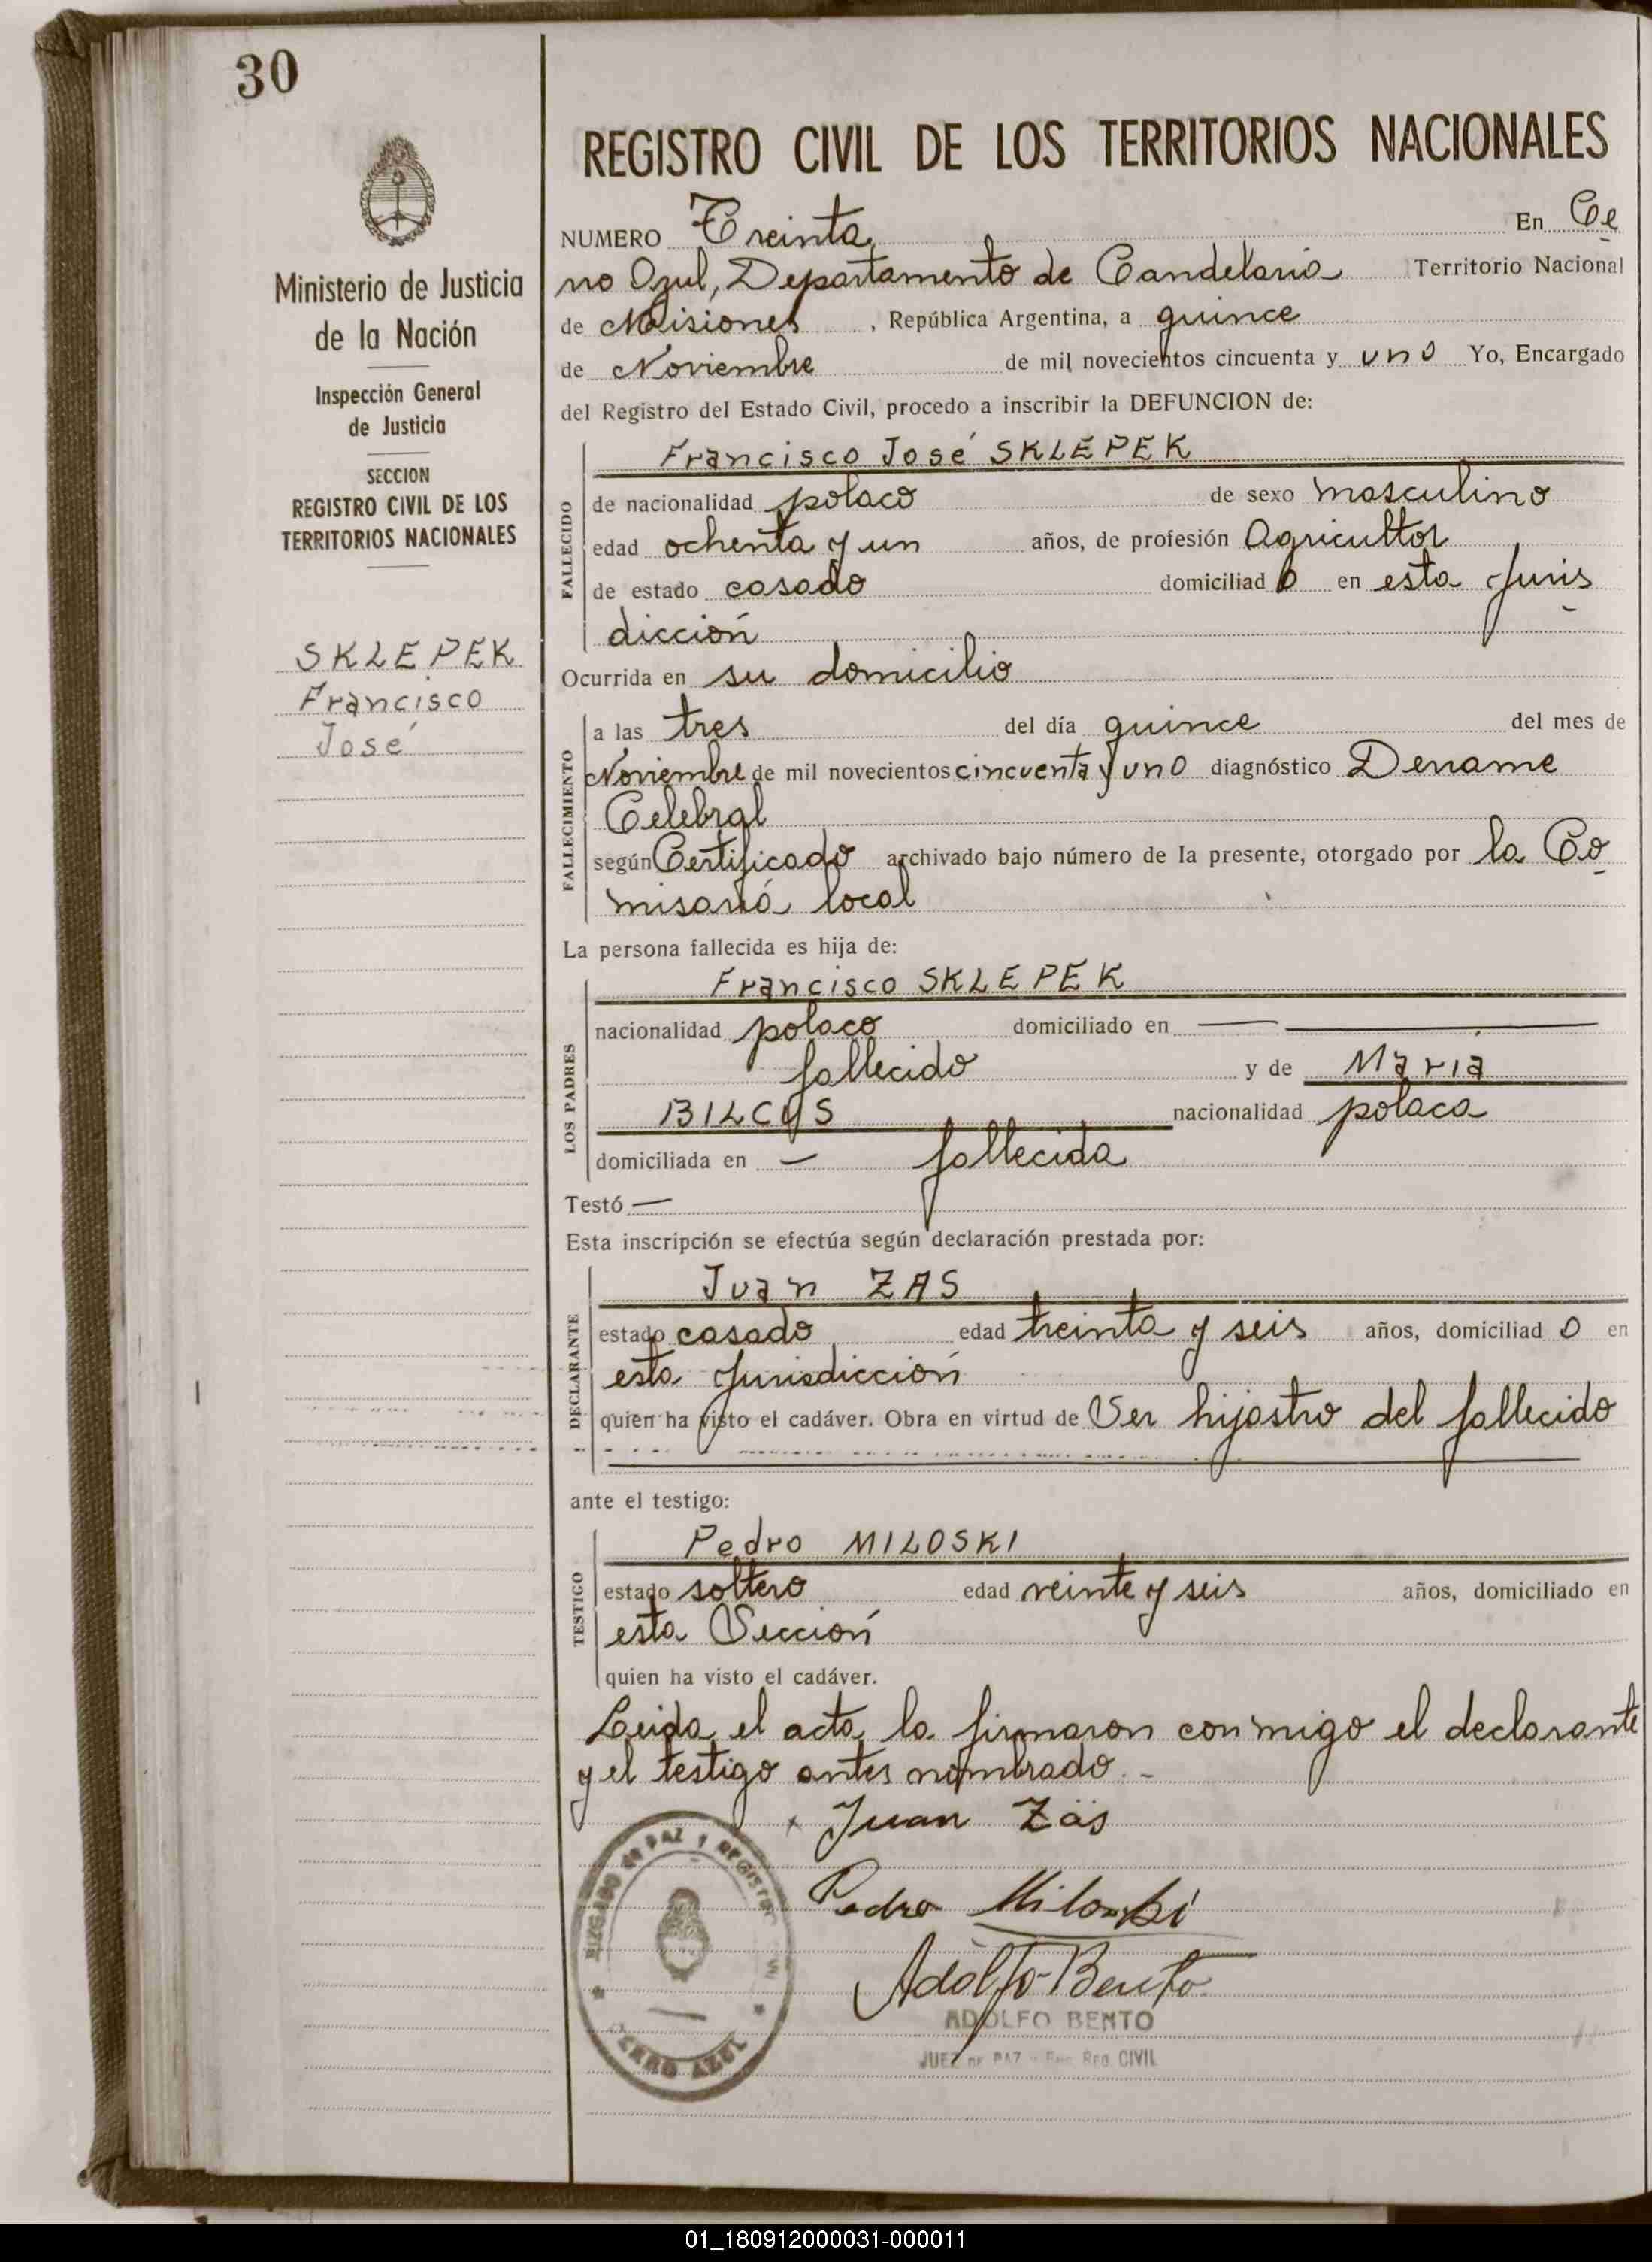 30
Ministerio de Justicia
de la Nación
Inspección General
de Justicia
SECCION
REGISTRO CIVIL DE LOS
TERRITORIOS NACIONALES
SKLEPEK
Francisco
José
REGISTRO CIVIL DE LOS TERRITORIOS NACIONALES
NUMERO Treinta En Ce
rro Azul, Departamento de Candelaria Territorio Nacional
de Misiones, República Argentina, a quince
de Noviembre de mil novecientos cincuenta y uno Yo, Encargado
del Registro del Estado Civil, procedo a inscribir la DEFUNCION de:
Francisco José SKLEPEK
FALLECIDO
de nacionalidad polaco de sexo masculino
edad ochenta y un años, de profesión Agricultor
de estado casado domiciliado en esta Juris
dicción
Ocurrida en su domicilio
FALLECIMIENTO
a las tres del día quince del mes de
Noviembre de mil novecientos cincuenta y uno diagnóstico Derrame
Celebral
según Certificado archivado bajo número de la presente, otorgado por la Co
misaría local
La persona fallecida es hija de:
LOS PADRES
Francisco SKLEPEK
nacionalidad polaco domiciliado en —
fallecido y de María
BILCYS nacionalidad polaca
domiciliada en — fallecida
Testó —
Esta inscripción se efectúa según declaración prestada por:
DECLARANTE
Juan ZAS
estado casado edad treinta y seis años, domiciliado en
esta Jurisdicción
quien ha visto el cadáver. Obra en virtud de Ser hijastro del fallecido
ante el testigo:
TESTIGO
Pedro MILOSKI
estado soltero edad veinte y seis años, domiciliado en
esta Sección
quien ha visto el cadáver.
Leida el acta la firmaron conmigo el declarante
y el testigo antes nombrado. -
x Juan Zäs
Pedro Miloski
Adolfo Bento
ADOLFO BENTO
JUEZ DE PAZ - Enc. REG. CIVIL
JUZGADO DE PAZ Y REGISTRO
CERRO AZUL
01_180912000031-000011